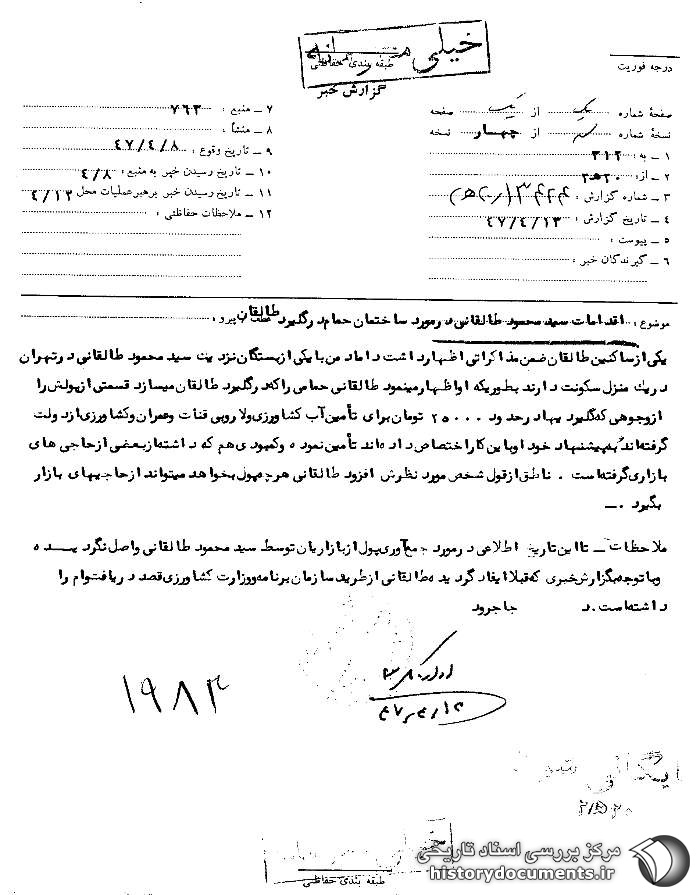 خیلی محرمانه
طبقه بندی حفاظتی
درجه فوریت
گزارش خبر
صفحهٔ شماره یک از یک صفحه
نسخهٔ شماره سه از چهار نسخه
۱ ـ به : ۳۱۲
۲ ـ از : ۲۰ه۲
۳ ـ شماره گزارش :
۴ ـ تاریخ گزارش : ۴۷/۴/۱۳
۵ ـ پیوست :
۶ ـ گیرندگان خبر :
۷ ـ منبع : ۷۶۳
۸ ـ منشأ :
۹ ـ تاریخ وقوع : ۴۷/۴/۸
۱۰ ـ تاریخ رسیدن خبر به منبع : ۴/۸
۱۱ ـ تاریخ رسیدن خبر برهبر عملیات محل ۴/۱۳
۱۲ ـ ملاحظات حفاظتی :
موضوع : اقدامات سید محمود طالقانی در مورد ساختمان حمام در گلیرد طالقان پیرو :
یکی از ساکنین طالقان ضمن مذاکراتی اظهار داشت داماد من با یکی از بستگان نزدیک سید محمود طالقانی در تهران
در یک منزل سکونت دارند بطوریکه او اظهار مینمود طالقانی حمامی را که در گلیرد طالقان میسازد قسمتی از پولش را
از وجوهی که گلیرد یها در حدود ۲۵۰۰۰ تومان برای تأمین آب کشاورزی ولا روبی قنات وعمران وکشاورزی از دولت
گرفته اند به پیشنهاد خود او باین کار اختصاص داده اند تأمین نموده وکمبودی هم که داشته از بعضی از حاجی های
بازاری گرفته است . ناطق از قول شخص مورد نظرش افزود طالقانی هرچه پول بخواهد میتواند از حاجیهای بازار
بگیرد . ـ
ملاحظات ـ تا این تاریخ اطلاعی در مورد جمع آوری پول از بازاریان توسط سید محمود طالقانی واصل نگردیده
وبا توجه بگزارش خبری که قبلا ایفاد گردیده طالقانی از طریق سازمان برنامه ووزارت کشاورزی قصد دریافت وام را
داشته است . د جاجرود
۴۷/۴/۱۳
۱۹۸۳
بایگانی شود
۲۰ه۲
طبقه بندی حفاظتی
مرکز بررسی اسناد تاریخی
historydocuments.ir